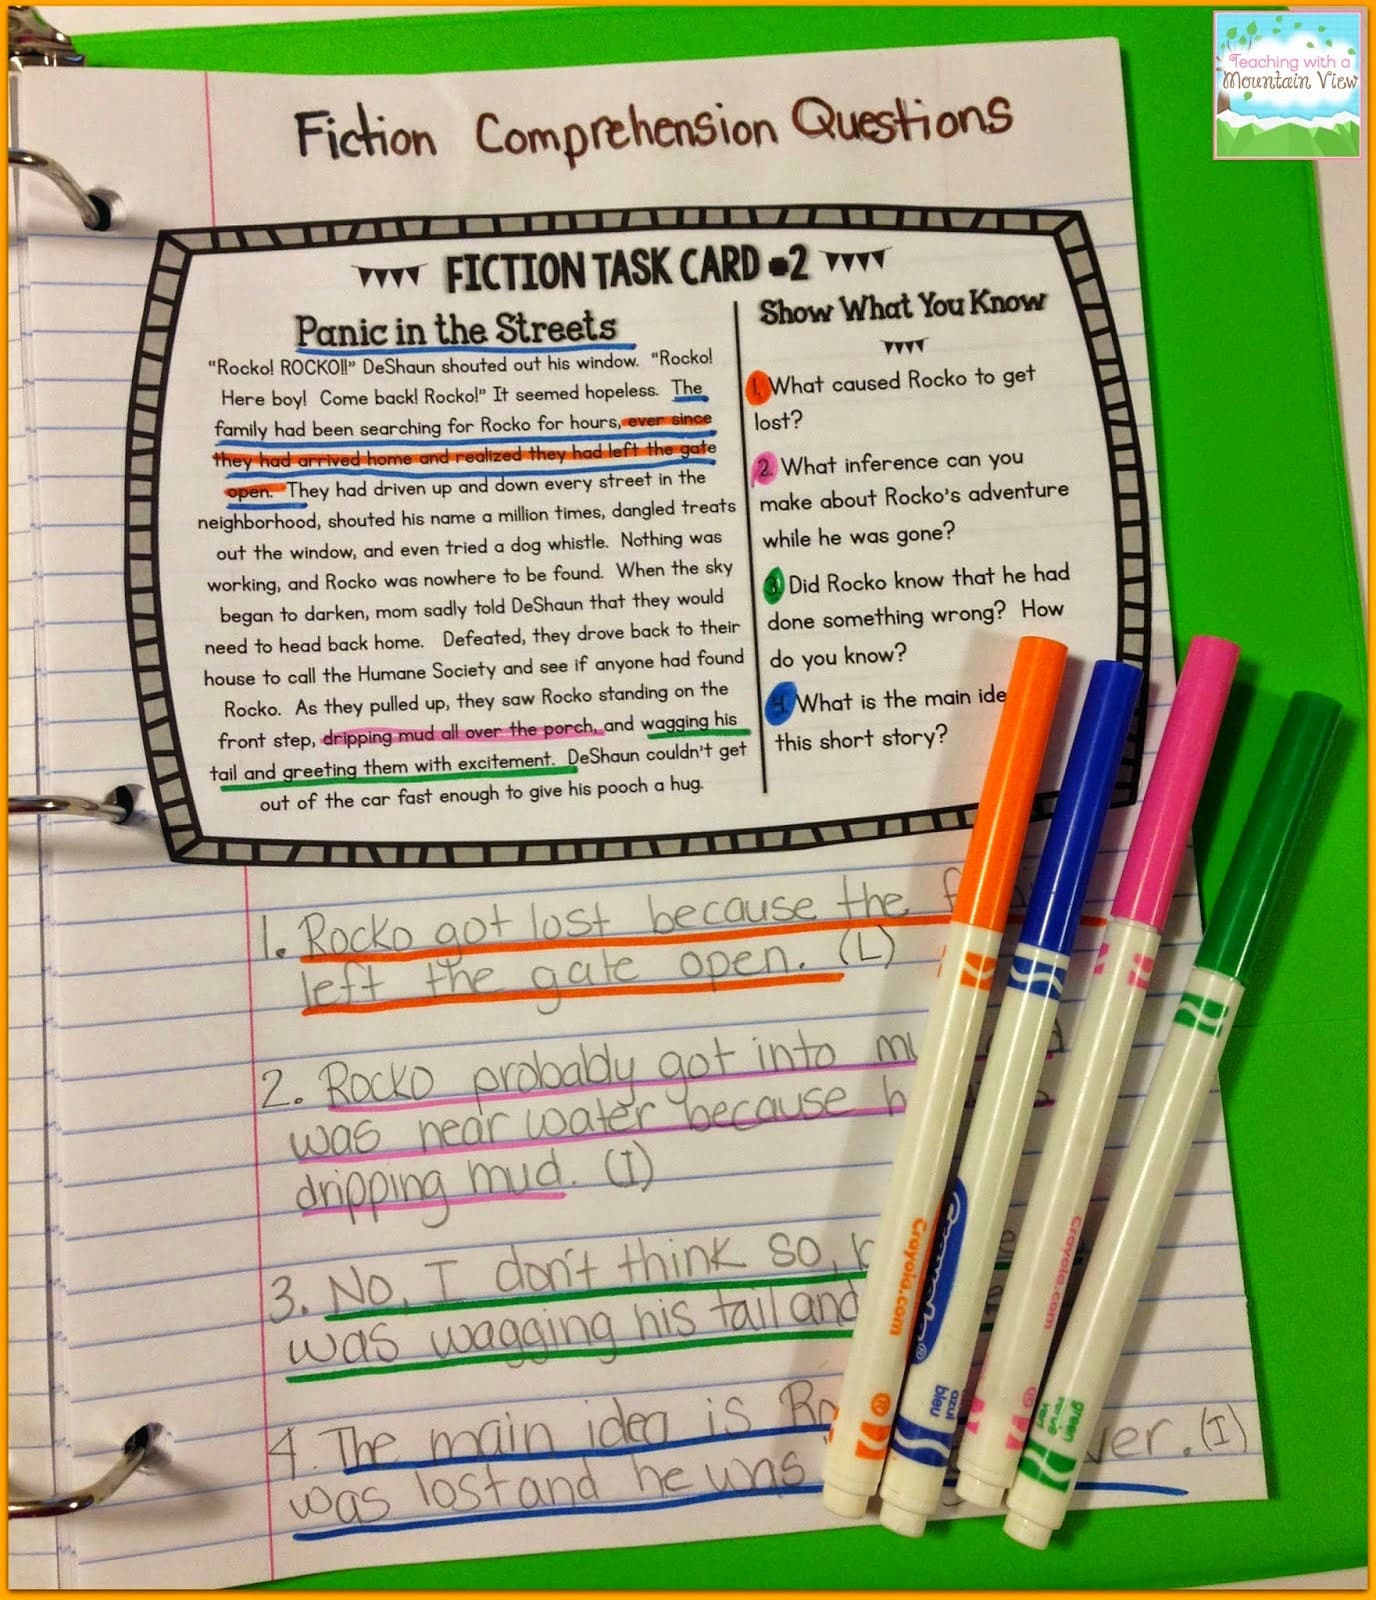 Teaching with a
Mountain View
Fiction Comprehension Questions
FICTION TASK CARD #2
Panic in the Streets
"Rocko! ROCKO!!" DeShaun shouted out his window. "Rocko!
Here boy! Come back! Rocko!" It seemed hopeless. The
family had been searching for Rocko for hours, ever since
they had arrived home and realized they had left the gate
open. They had driven up and down every street in the
neighborhood, shouted his name a million times, dangled treats
out the window, and even tried a dog whistle. Nothing was
working, and Rocko was nowhere to be found. When the sky
began to darken, mom sadly told DeShaun that they would
need to head back home. Defeated, they drove back to their
house to call the Humane Society and see if anyone had found
Rocko. As they pulled up, they saw Rocko standing on the
front step, dripping mud all over the porch, and wagging his
tail and greeting them with excitement. DeShaun couldn't get
out of the car fast enough to give his pooch a hug.
Show What You Know
1. What caused Rocko to get
lost?
2. What inference can you
make about Rocko's adventure
while he was gone?
3. Did Rocko know that he had
done something wrong? How
do you know?
4. What is the main ide
this short story?
1. Rocko got lost because the
left the gate open. (L)
2. Rocko probably got into
was near water because
dripping mud. (I)
3. No, I don't think so,
was wagging his tail and
4. The main idea is
was lost and he was (I)
Crayola.com
azul
bleu
Crayola.com
green
verde
vert